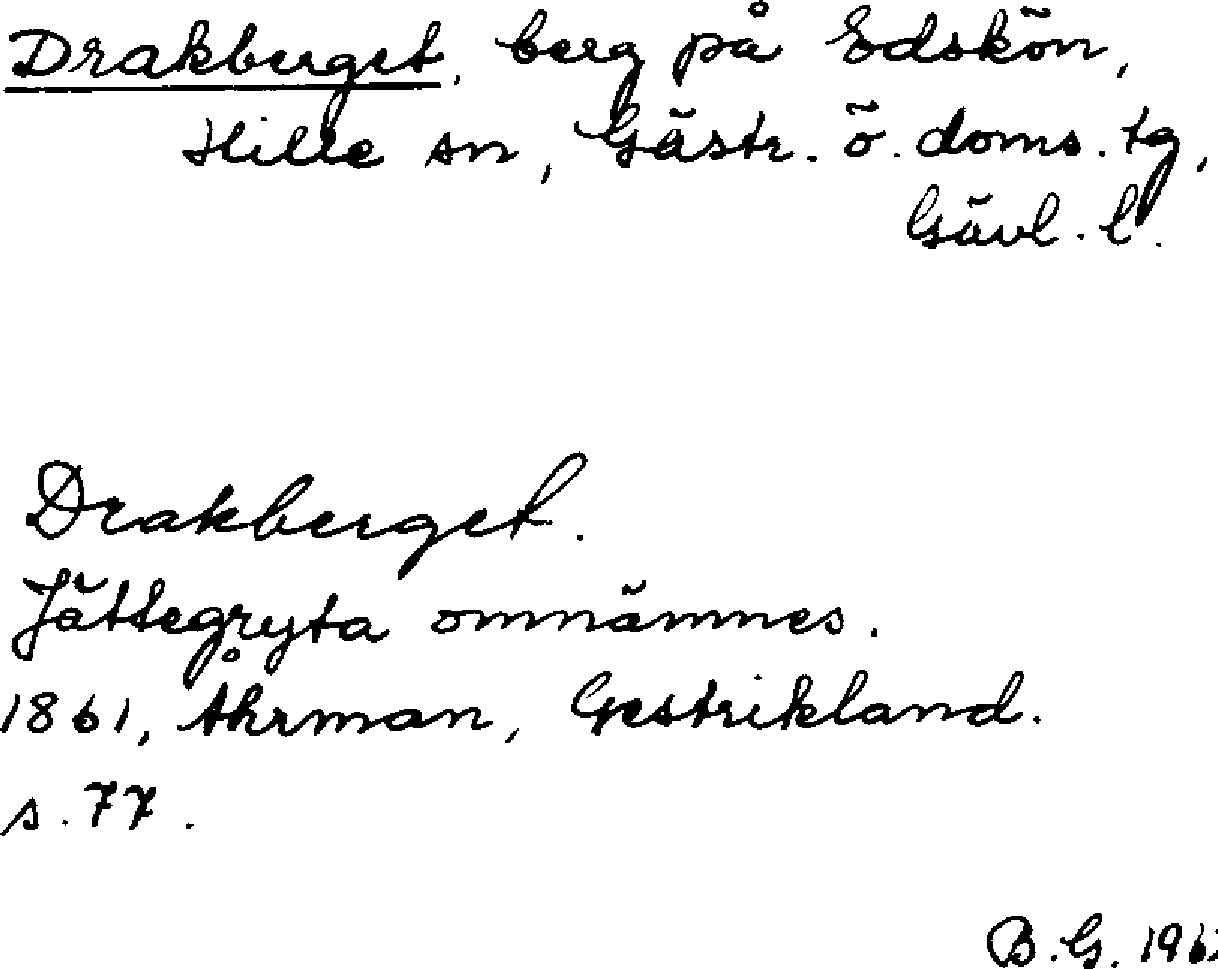 Drakberget, berg på Edskön,
Hille sn, Gästr. ö. doms. tg,
Gävl. l.
Drakberget.
Jättegryta omnämnes.
1861, Åhrman, Gestrikland.
s. 77.
B.G.